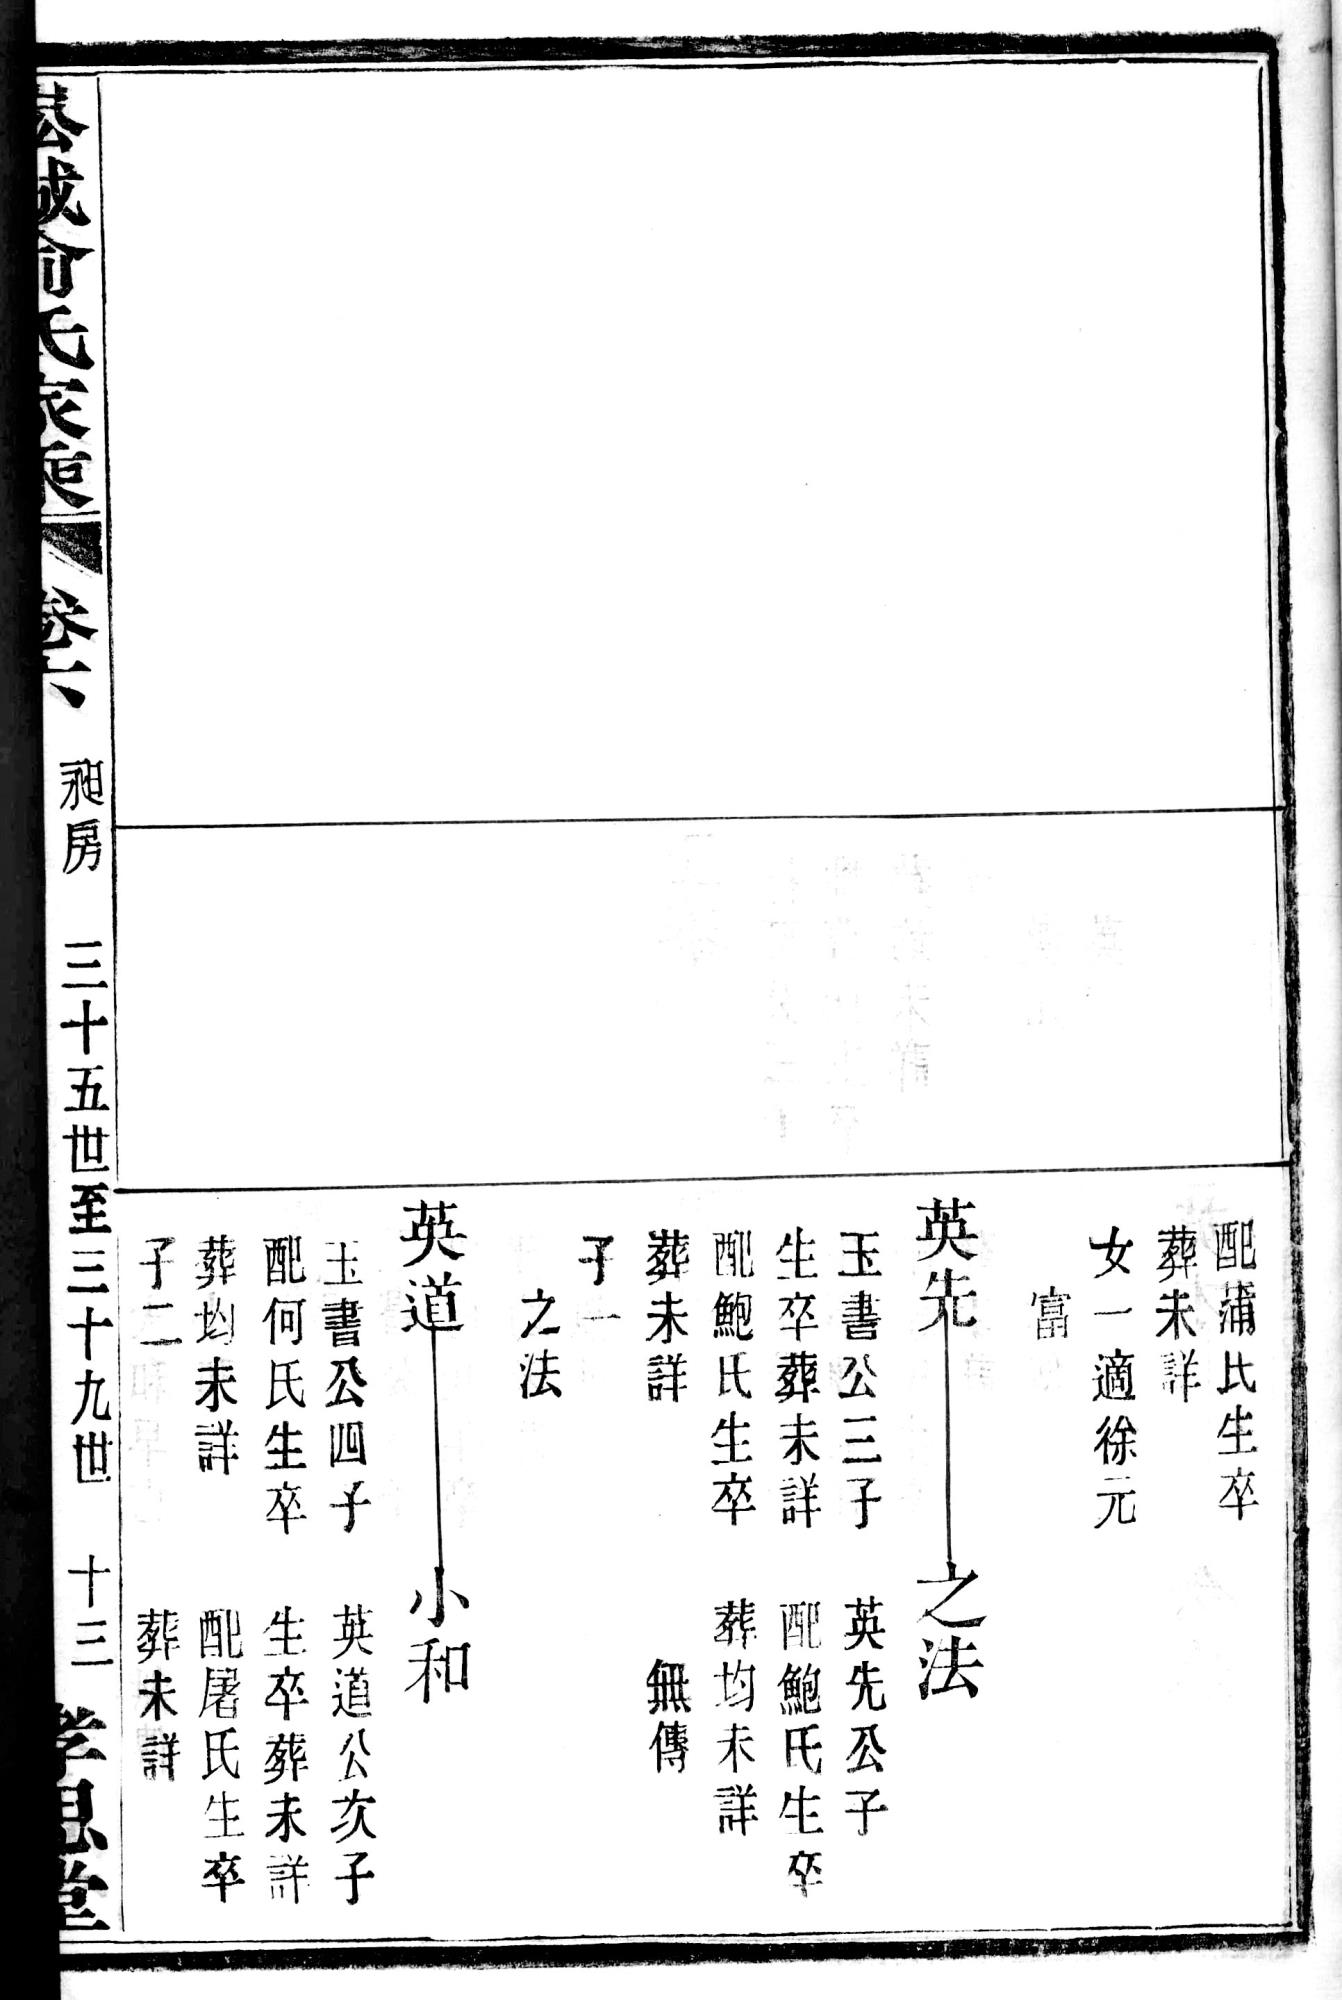 配蒲氏生卒
葬未詳
女一適徐元
富
英先
之法
玉書公三子
英先公子
生卒葬未詳
配鮑氏生卒
配鮑氏生卒
葬均未詳
葬未詳
無傳
子一
之法
英道
小和
玉書公四子
英道公次子
配何氏生卒
生卒葬未詳
葬均未詳
配屠氏生卒
子二
葬未詳
俞氏家乘
卷六
昶房
三十五世至三十九世
十三
孝思堂